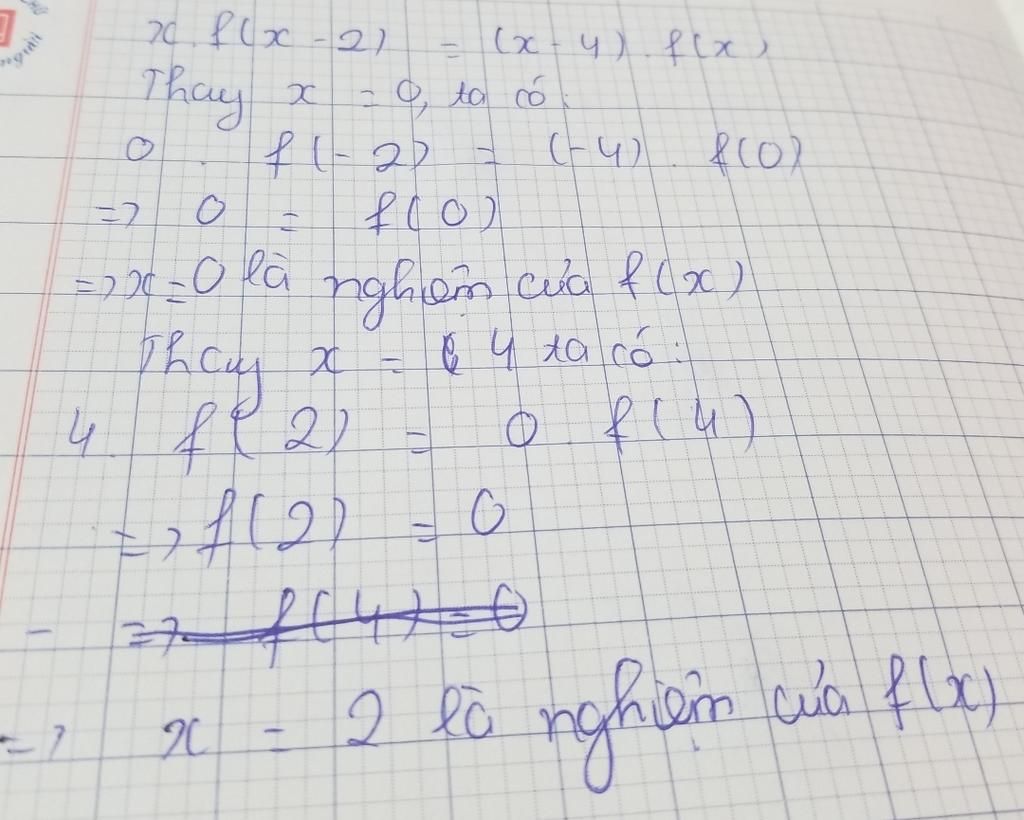 x. f(x - 2) = (x - 4). f(x)
Thay x = 0, ta có:
0 . f(-2) = (-4). f(0)
=> 0 = f(0)
=> x = 0 là nghiệm của f(x)
Thay x = 4 ta có:
4. f(2) = 0. f(4)
=> f(2) = 0
- => f(4) = 0
=> x = 2 là nghiệm của f(x)